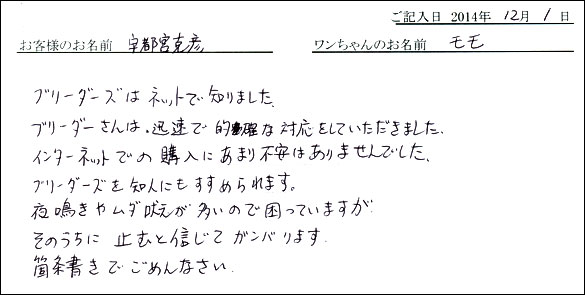 ご記入日 2014年 12月 1日
お客様のお名前 宇都宮克彦 ワンちゃんのお名前 モモ
ブリーダーズはネットで知りました。
ブリーダーさんは、迅速で的確な対応をしていただきました。
インターネットでの購入にあまり不安はありませんでした。
ブリーダーズを知人にもすすめられます。
夜鳴きやムダ吠えが多いので困っていますが
そのうちに止むと信じてガンバります。
箇条書きでごめんなさい。